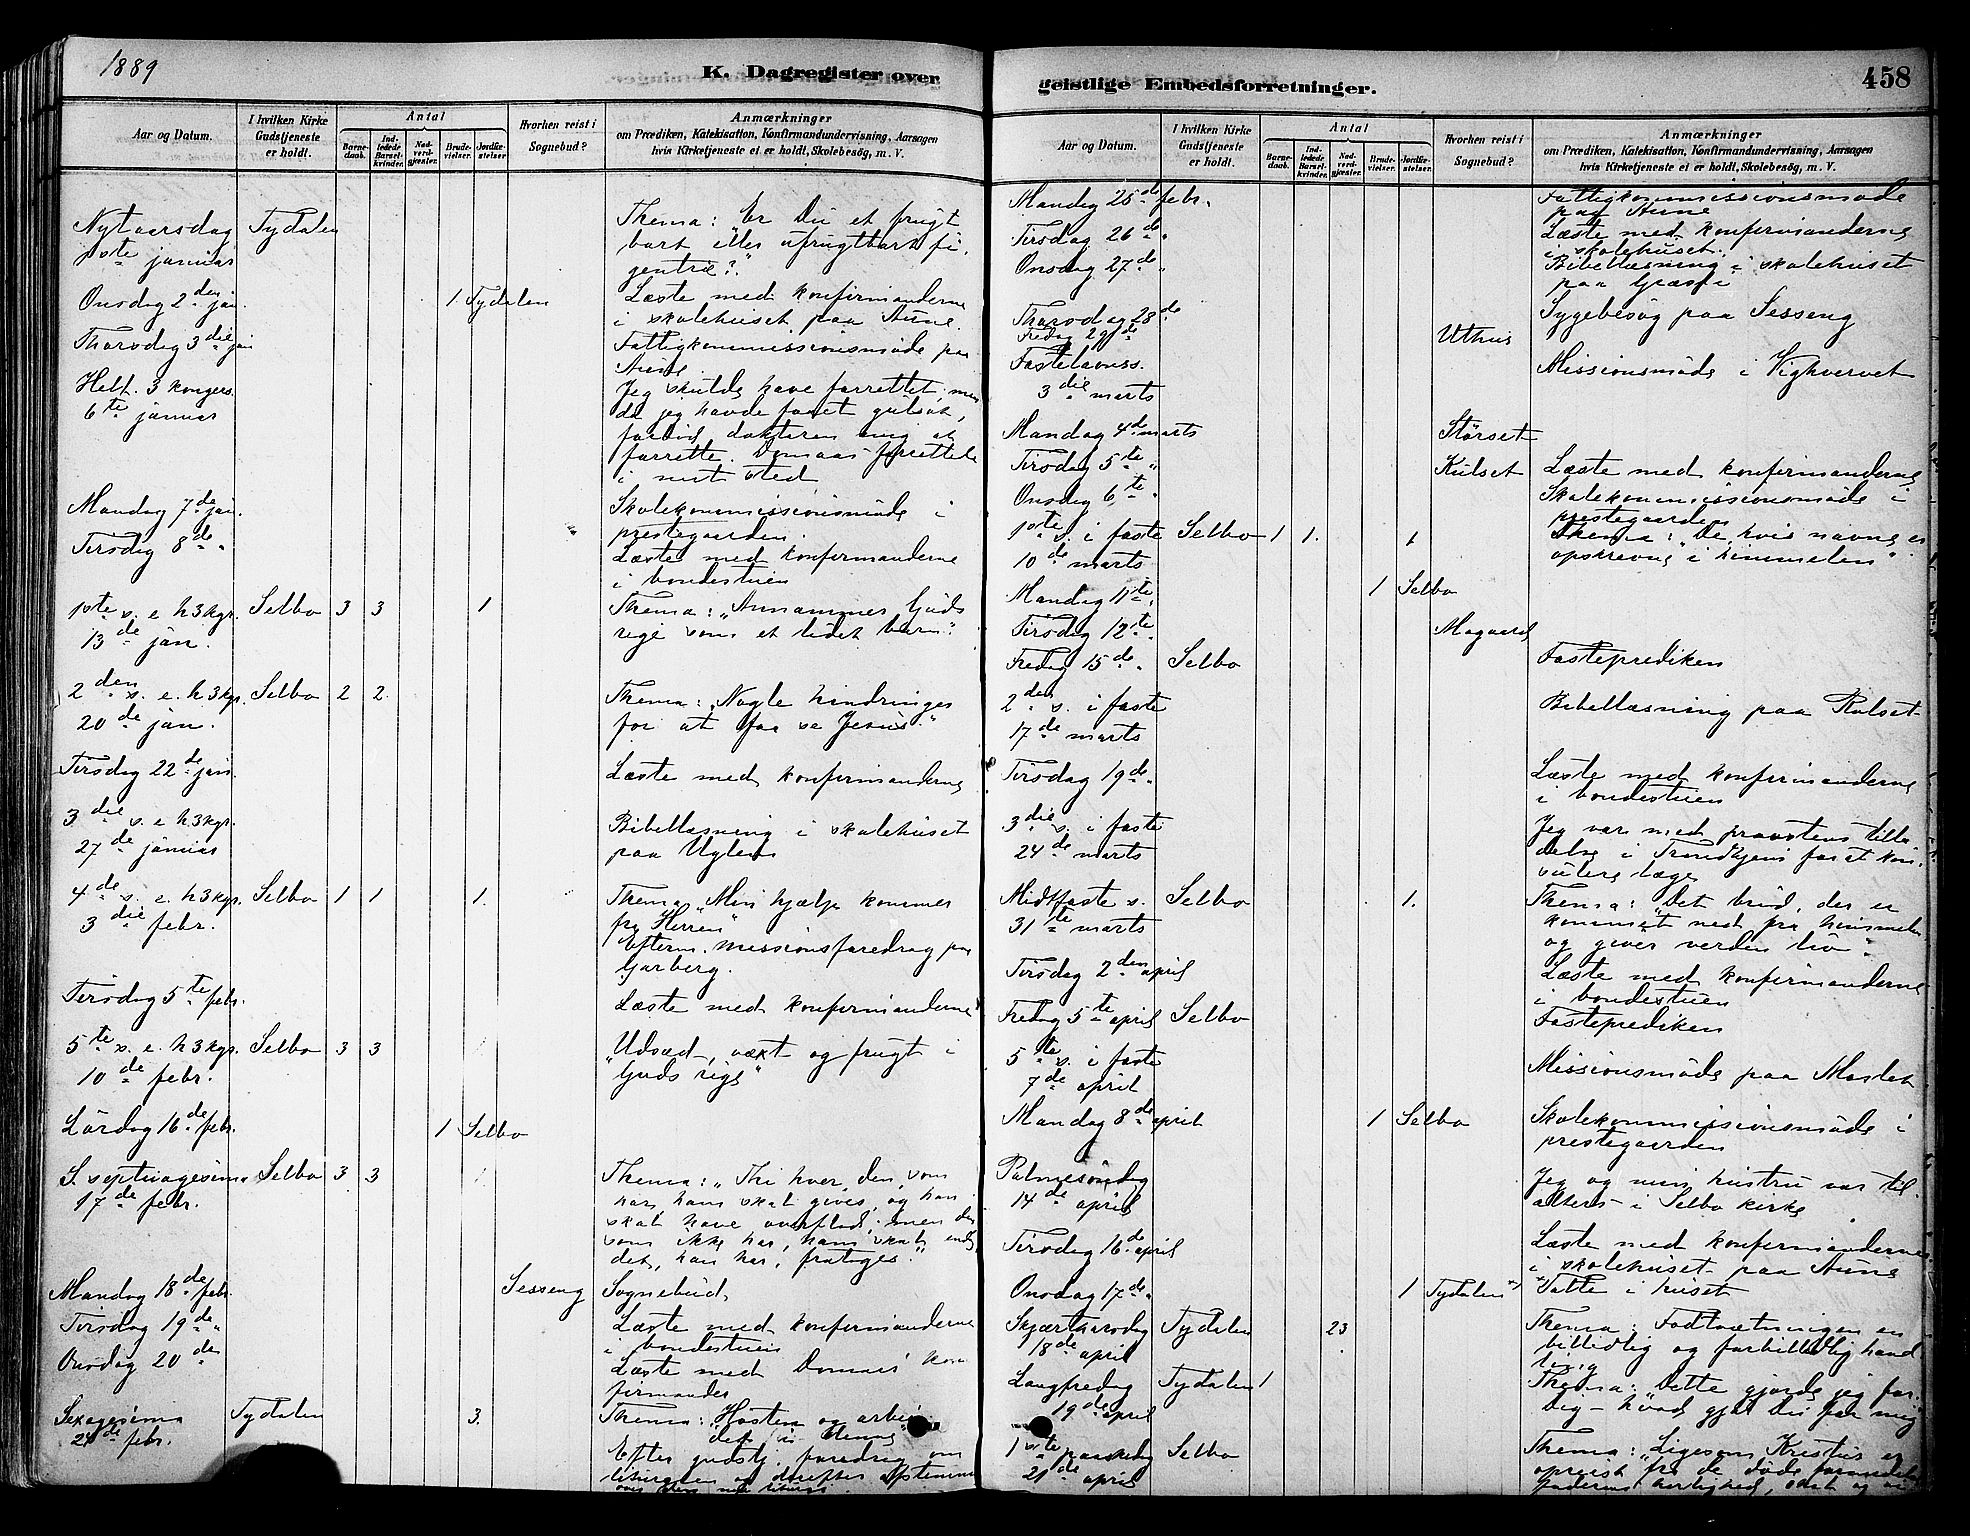 1889
K. Dagregister over
Aar og Datum.
I hvilken Kirke Gudstjeneste er holdt.
Antal
Barnedaab.
Indledede Barselkvinder.
Nadverdgjester.
Brudevielser.
Jordfæstelser.
Hvorhen reist i Sognebud?
Anmærkninger
om Prædiken, Katekisation, Konfirmandundervisning, Aarsagen
hvis Kirketjeneste ei er holdt, Skolebesög, m. V.
Nytaarsdag Tydalen Thema: "Er Du et frugt
1ste januar bart eller ufrugtbart fi
gentræ?"
Onsdag 2den jan. 1 Tydalen Læste med konfirmanderne
i skolehuset paa Aune.
Thorsdag 3die jan Fattigkommissionsmöde paa
Aune.
Hell. 3 kongers Jeg skulde have forrettet, men
6te januar da jeg havde faaet gulsot,
forböd doktoren mig at
forrette. Domaas forrettede
i mit sted.
Mandag 7de jan. Skolekommissionsmöde i
prestegaarden.
Tirsdag 8de " Læste med konfirmanderne
i bondestuen
1ste s. e. h 3 kgr. Selbo 3 3 1 Thema: "Annammer Guds
13de jan. rige som et lidet barn."
2den s. e. h 3 kgr. Selbo 2 2 Thema: "Nogle hindringer
20de jan. for at faa se Jesus."
Tirsdag 22de jan. Læste med konfirmanderne
3die s. e. h 3 kgr. Bibellæsning i skolehuset
27de januar paa Uglen
4de s. e. h 3 kgr. Selbo 1 1 1. Thema "Min hjælp kommer
3die febr. fra Herren"
Efterm. missionsforedrag paa
Garberg.
Tirsdag 5te febr. Læste med konfirmanderne
5te s. e. h 3 kgr. Selbo 3 3 "Udsæd, vext og frugt i
10de febr. Guds rige"
Lördag 16de febr. 1 Selbo
S. septuagesima Selbo 3 3 Thema: "Thi hver, den, som
17de febr. har, ham skal gives, og han
skal have overflod; men den
som ikke har, ham skal endog
det, han har, fratages."
Mandag 18de febr. Sesseng Sognebud,
Tirsdag 19de " Læste med konfirmanderne
i bondestuen
Onsdag 20de Læste med Domaas' kon
firmander
Sexagesima Tydalen 3. Thema: Hösten og arbei
24de febr. det i denne
Efter gudstj. foredrag om
liturgien og derefter afstemning
geistlige Embedsforretninger.
458
Aar og Datum.
I hvilken Kirke Gudstjeneste er holdt.
Antal
Barnedaab.
Indledede Barselkvinder.
Nadverdgjester.
Brudevielser.
Jordfæstelser.
Hvorhen reist i Sognebud?
Anmærkninger
om Prædiken, Katekisation, Konfirmandundervisning, Aarsagen
hvis Kirketjeneste ei er holdt, Skolebesög, m. V.
Mandag 25de febr. Fattigkommissionsmöde
paa Aune
Tirsdag 26de " Læste med konfirmanderne
i skolehuset.
Onsdag 27de " Bibellæsning i skolehuset
paa Græsli
Thorsdag 28de Sygebesög paa Sesseng
Fredag 29de Uthus
Fastelavnss. Missionsmöde i Vighvervet
3die marts
Mandag 4de marts Störset
Tirsdag 5te " Kulset Læste med konfirmanderne
Onsdag 6te " Skolekommissionsmöde i
prestegaarden
1ste s. i faste Selbo 1 1. 1 Thema: "De, hvis navne er
10de marts opskrevne i himmelen"
Mandag 11te " 1 Selbo
Tirsdag 12te " Mogaard
Fredag 15de " Selbo Fasteprediken
2den s. i faste Bibellæsning paa Rolset
17de marts
Tirsdag 19de " Læste med konfirmanderne
i bondestuen
3die s. i faste Jeg var med provstens tilla
24de marts delse i Trondhjem for at kon
sulere læge
Midtfaste s. Selbo 1. Thema: "Det bröd, der er
31te marts kommet ned fra himmelen
og giver verden liv"
Tirsdag 2den april Læste med konfirmanderne
i bondestuen
Fredag 5te april Selbo Fasteprediken
5te s. i faste Missionsmöde paa Moslet
7de april
Mandag 8de april 1 Selbo Skolekommissionsmöde i
prestegaarden
Palmesöndag Jeg og min hustru var til
14de april alters i Selbo kirke
Tirsdag 16de april Læste med konfirmanderne
i skolehuset paa Aune
Onsdag 17de " 1 Tydalen i huset
Skjærthorsdag Tydalen 23 Thema: Fodtvætningen en
18de april billedlig og forbilledlig hand
ling
Langfredag Tydalen 1 Thema: "Dette gjorde jeg for
19de april Dig – hvad gjör Du for mig"
1ste paaskedag Selbo Thema: "Ligesom Kristus er
21de april opreist fra de döde formedelst
Faderens herlighed,